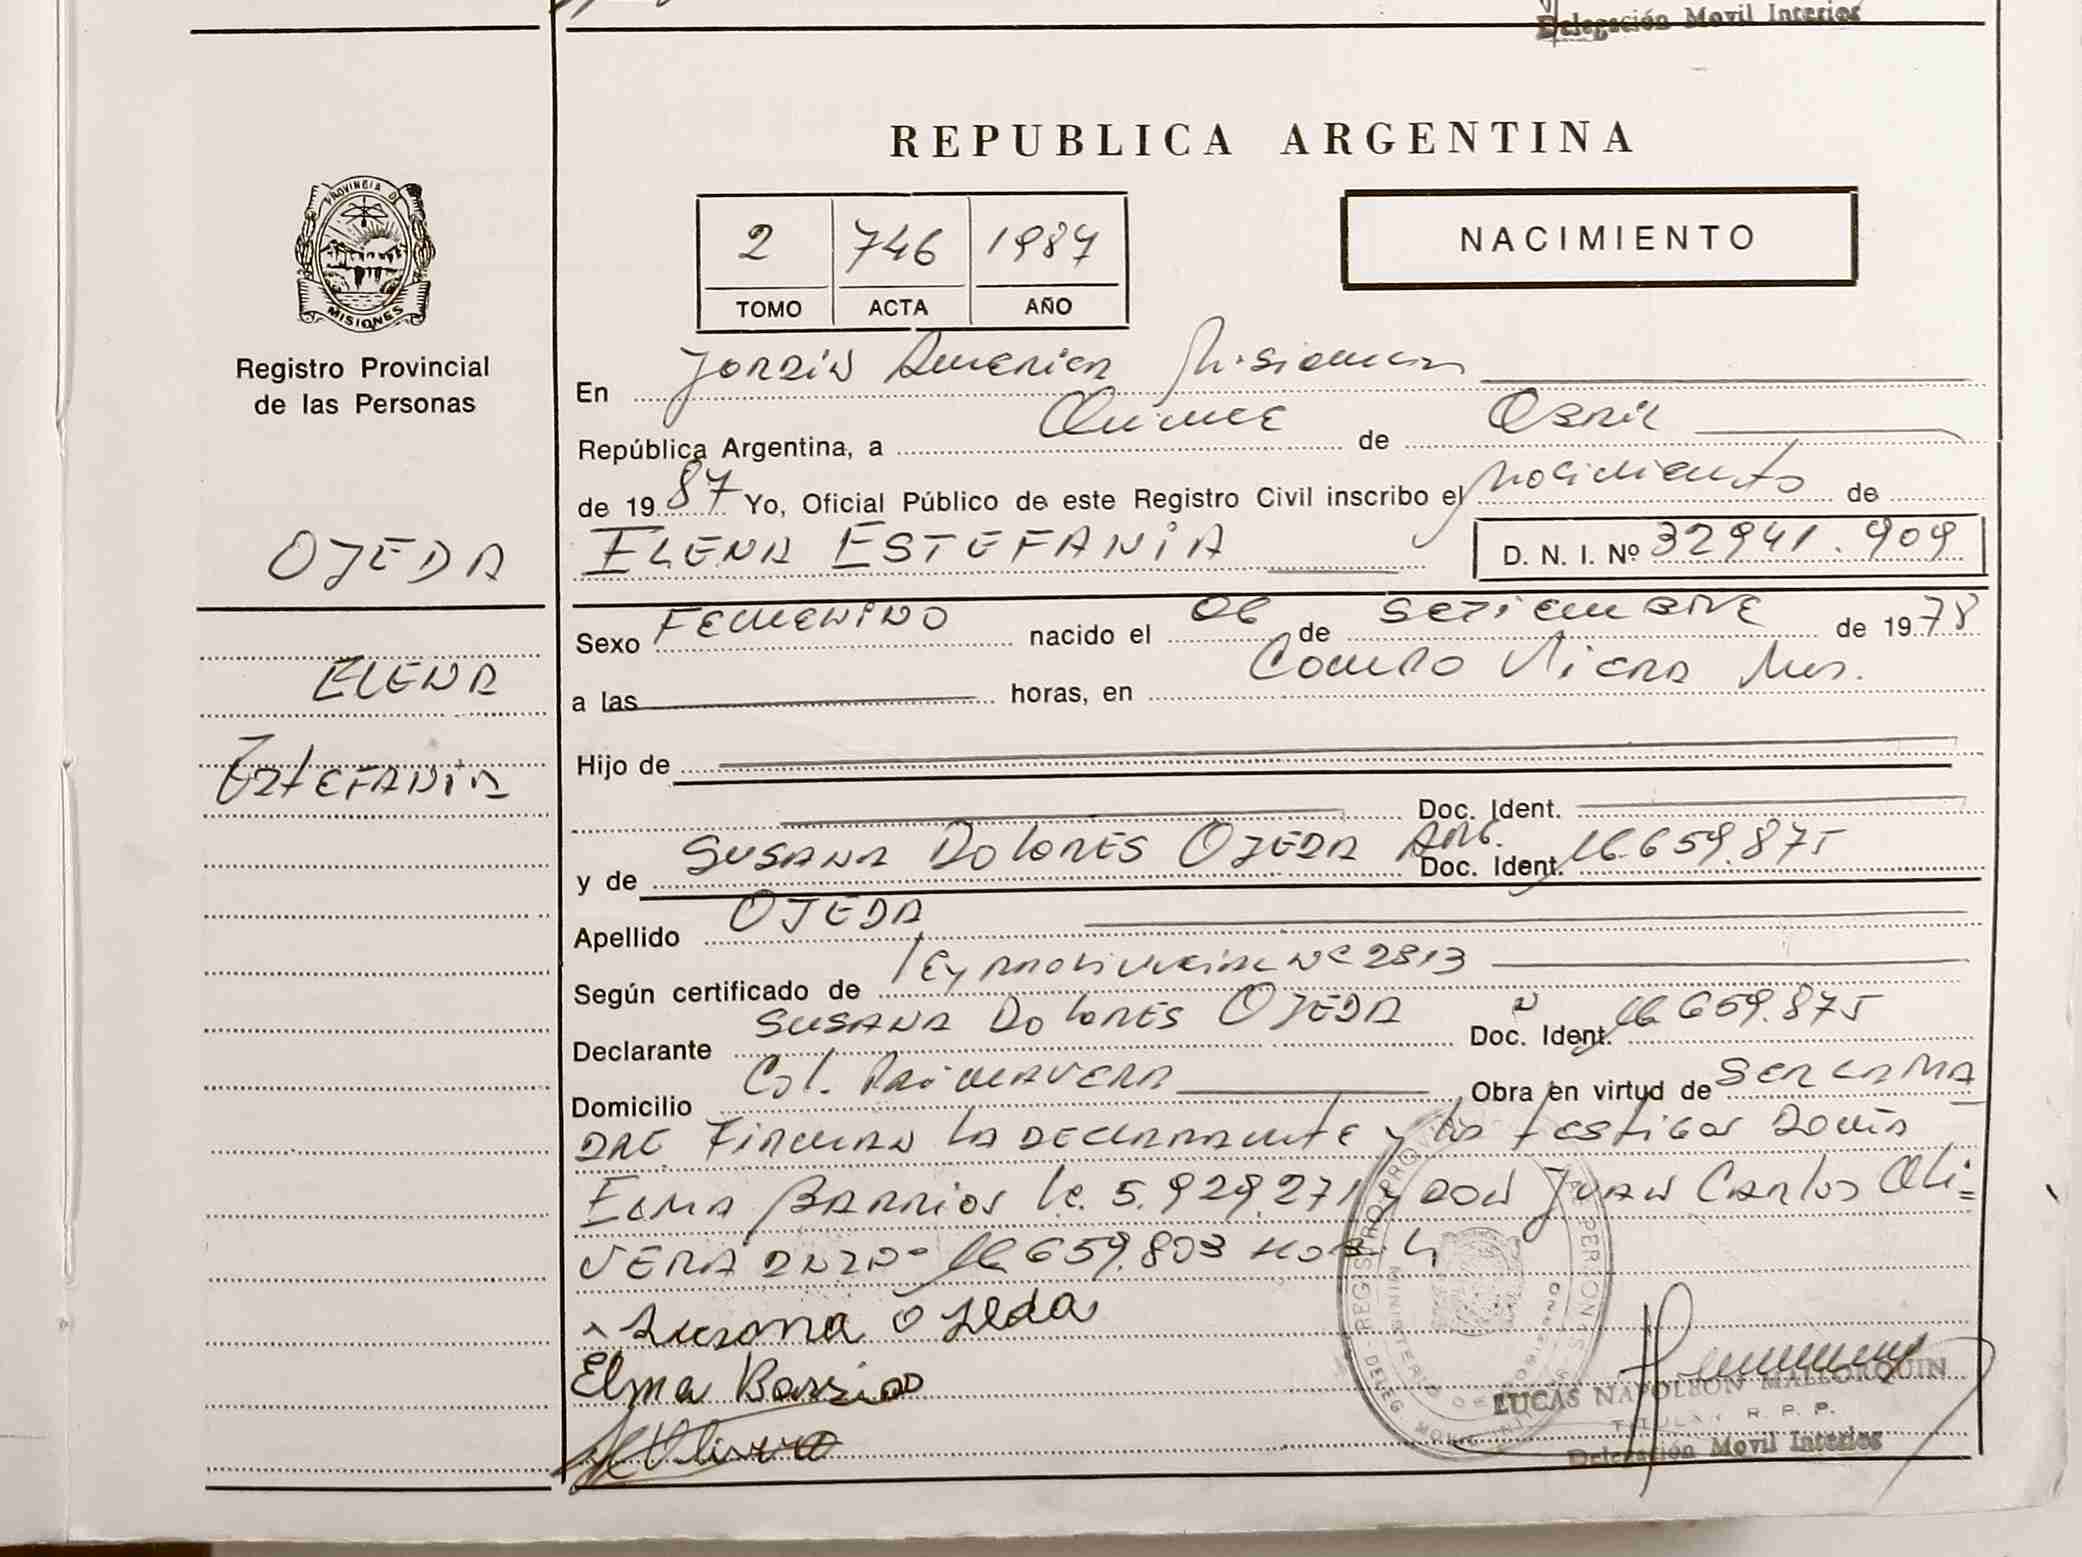 Delegación Movil Interior
REPUBLICA ARGENTINA
PROVINCIA D
MISIONES
Registro Provincial
de las Personas
2 746 1987
TOMO ACTA AÑO
NACIMIENTO
En Jordin America Misiones
República Argentina, a Quince de Abril
de 1987 Yo, Oficial Público de este Registro Civil inscribo el nacimiento de
OJEDA
ELENA ESTEFANIA D. N. I. Nº 32941.909
ELENA
EstEFANIA
Sexo FEMENINO nacido el 06 de SETIEMBRE de 1978
a las horas, en Comuo Micra Mes.
Hijo de
Doc. Ident.
y de SUSANA DOLORES OJEDA ARG. Doc. Ident. 16.659.875
Apellido OJEDA
Según certificado de LEy PROVINCIAL Nº 2813
Declarante SUSANA DOLORES OJEDA Doc. Ident. 16.659.875
Domicilio Col. PRIMAVERA Obra en virtud de SER LA MA
DRE FIRMAN LA DECLARANTE y los testigos DOÑA
ELMA BARRIOS l.c. 5.929.271 y DON JUAN CARLOS Oli=
VERA 16.659.803
Susana Ojeda
Elma Barrios
LUCAS NAPOLEON MALLORQUIN
TITULAR R. P. P.
Delegación Movil Interior